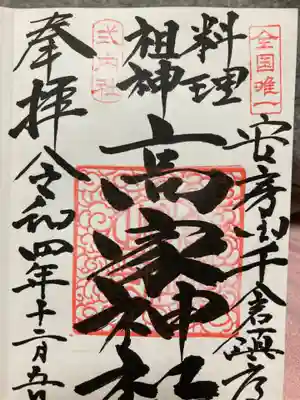 全国唯一
安房国千倉鎮座
料理
祖神
式内社
高家神社
奉拝 令和四年十二月五日